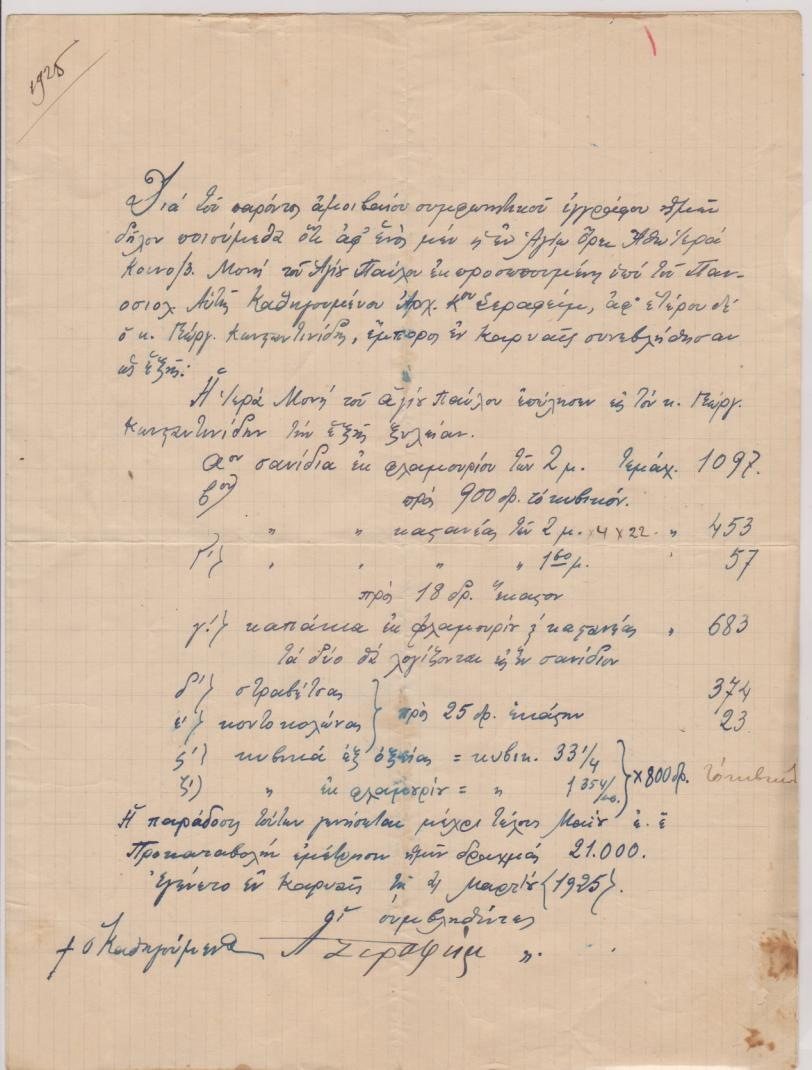 1925
Διά τοῦ παρόντος ἀμοιβαίου συμφωνητικοῦ ἐγγράφου
δῆλον ποιούμεθα ὅτι ἀφ' ἑνός μέν ἡ ἐν Ἁγίῳ Ὄρει Ἄθῳ Ἱερά
Κοινοβ. Μονή τοῦ Ἁγίου Παύλου ἐκπροσωπουμένη ὑπό τοῦ Παν-
οσιολ. Αὐτῆς Καθηγουμένου Ἀρχ. Κου Σεραφείμ, ἀφ' ἑτέρου δέ
ὁ κ. Γεώργ. Κωνσταντινίδης, ἔμπορος ἐν Καρυαῖς συνεβλήθησαν
ὡς ἑξῆς:
Ἡ Ἱερά Μονή τοῦ Ἁγίου Παύλου ἐπώλησεν εἰς τόν κ. Γεώργ.
Κωνσταντινίδην τήν ἑξῆς ξυλείαν.
αον σανίδια ἐκ φλαμουρίου τῶν 2 μ. τεμάχ. 1097.
βον) πρός 900 δρ. τό κυβικόν.
" " καστανέας τῶν 2 μ. x 4 x 22. " 453
Γ') " " " " 1 60 μ. " 57
πρός 18 δρ. ἕκαστον
γ.') καπάκια ἐκ φλαμουρίου ἤ καστανέας " 683
τά δύο θά λογίζονται εἰς ἕν σανίδιον
δ') στραβέτσας 374
ε') κοντοκολώνας } πρός 25 δρ. ἑκάστην 23
ς') κυβικά ἐξ ὀξείας = κυβικ. 33 1/4
ζ') " ἐκ φλαμουρίου = " 1 354/ } x 800 δρ. τό κυβικόν
Ἡ παράδοσις τούτων γενήσεται μέχρι τέλους Μαΐου ἐ. ἔ
Προκαταβολήν ἐμέτρησεν ἡμῖν δραχμάς 21.000.
Ἐγένετο ἐν Καρυαῖς τῇ 21 Μαρτίου (1925).
Οἱ συμβληθέντες
† ὁ Καθηγούμενος Ἀ Σεραφείμ